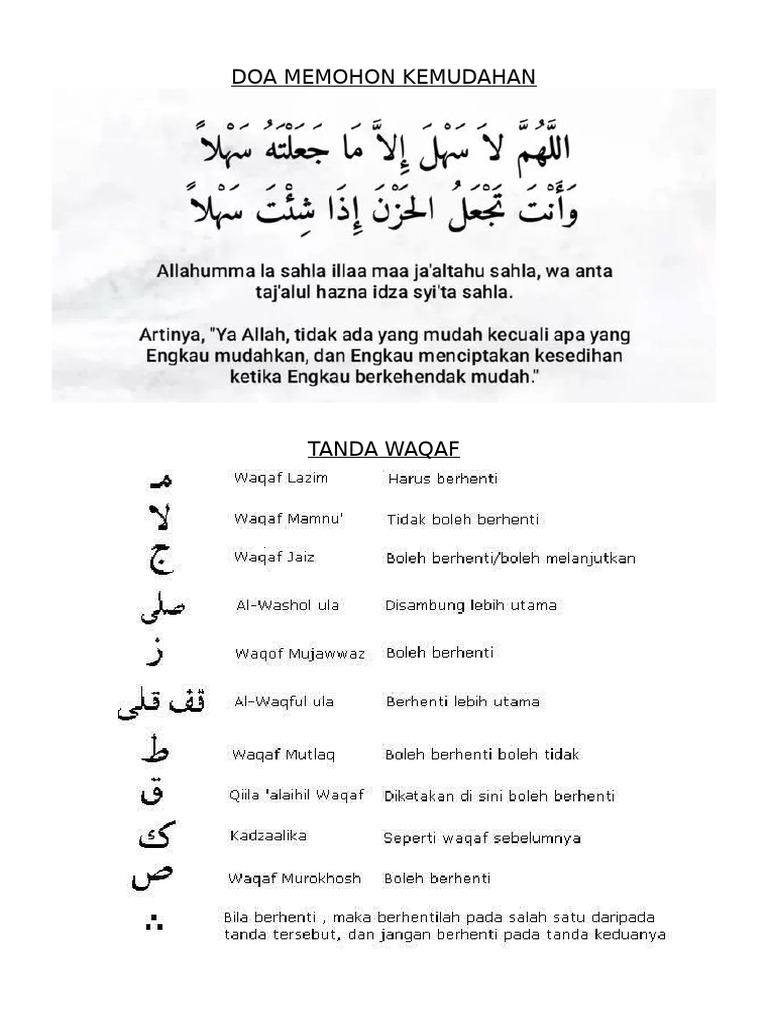 DOA MEMOHON KEMUDAHAN
اللَّهُمَّ لاَ سَهْلَ إِلاَّ مَا جَعَلْتَهُ سَهْلاً
وَأَنْتَ تَجْعَلُ الحَزْنَ إِذَا شِئْتَ سَهْلاً
Allahumma la sahla illaa maa ja'altahu sahla, wa anta
taj'alul hazna idza syi'ta sahla.
Artinya, "Ya Allah, tidak ada yang mudah kecuali apa yang
Engkau mudahkan, dan Engkau menciptakan kesedihan
ketika Engkau berkehendak mudah."
TANDA WAQAF
مـ Waqaf Lazim Harus berhenti
لا Waqaf Mamnu' Tidak boleh berhenti
ج Waqaf Jaiz Boleh berhenti/boleh melanjutkan
صلى Al-Washol ula Disambung lebih utama
ز Waqof Mujawwaz Boleh berhenti
قف قلى Al-Waqful ula Berhenti lebih utama
ط Waqaf Mutlaq Boleh berhenti boleh tidak
ق Qiila 'alaihil Waqaf Dikatakan di sini boleh berhenti
ك Kadzaalika Seperti waqaf sebelumnya
ص Waqaf Murokhosh Boleh berhenti
∴ Bila berhenti , maka berhentilah pada salah satu daripada
tanda tersebut, dan jangan berhenti pada tanda keduanya